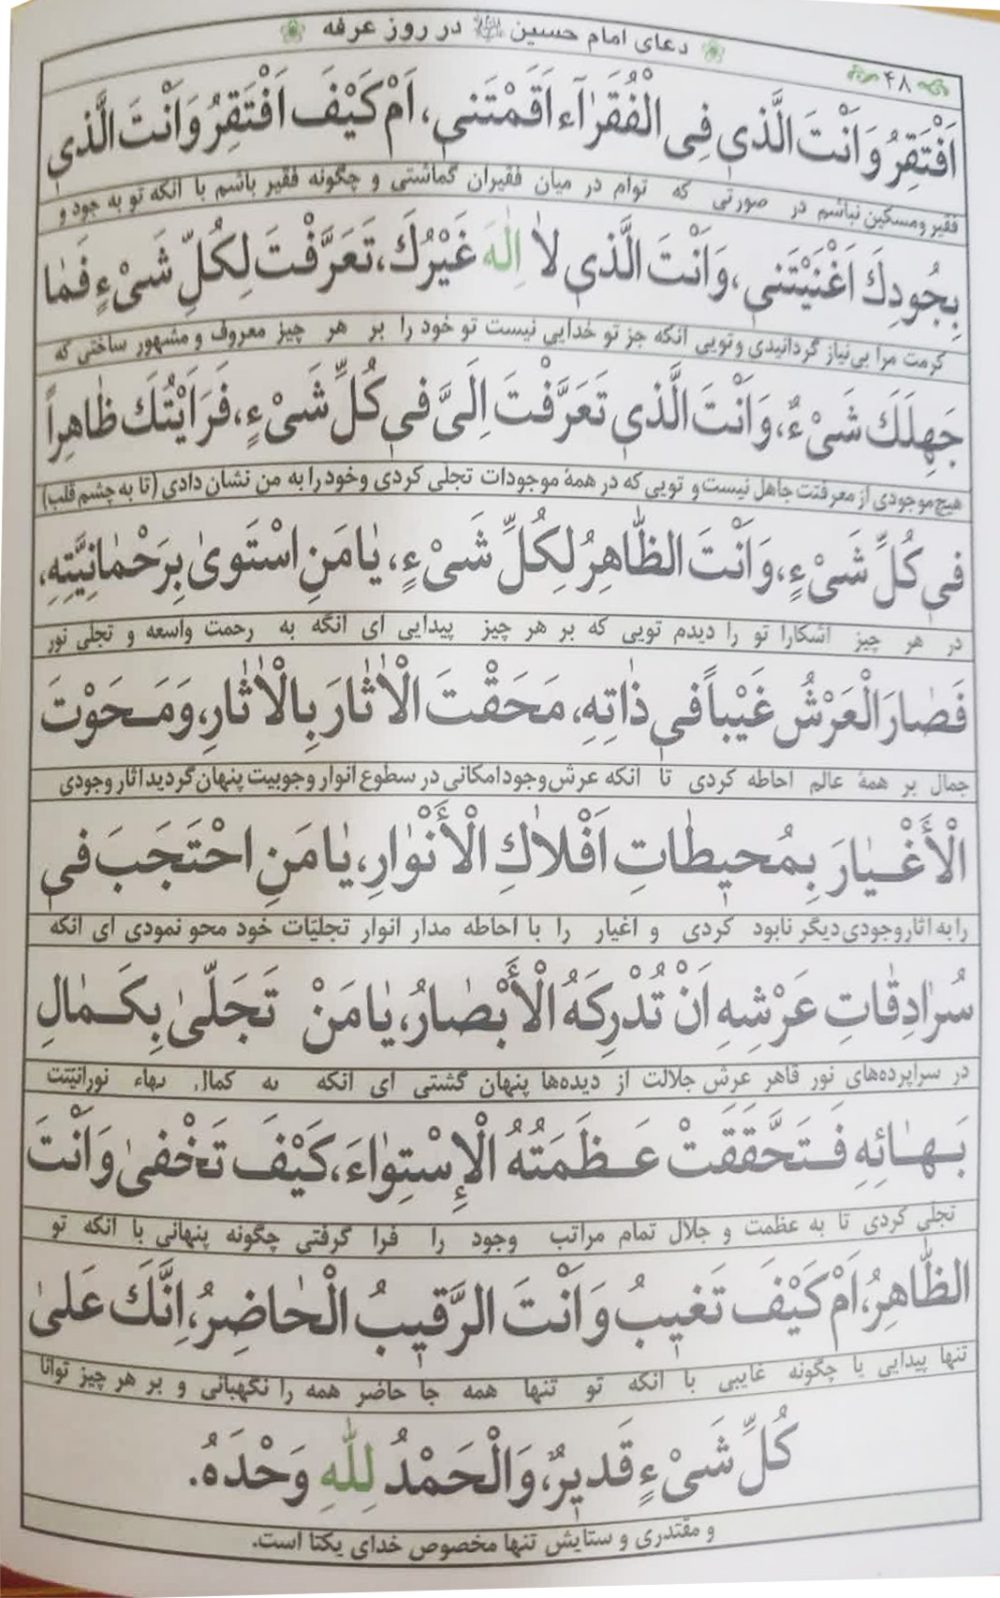 دعای امام حسین در روز عرفه
۴۸
اَفْتَقِرُ وَاَنْتَ الَّذي فِي الْفُقَرٰآءِ اَقَمْتَني، اَمْ كَيْفَ اَفْتَقِرُ وَاَنْتَ الَّذي
فقیر ومسکین نباشم در صورتی که توام در میان فقیران گماشتی و چگونه فقیر باشم با انکه تو به جود و
بِجُودِكَ اَغْنَيْتَني، وَاَنْتَ الَّذي لاٰ اِلٰهَ غَيْرُكَ، تَعَرَّفْتَ لِكُلِّ شَيْءٍ فَمٰا
کرمت مرا بی‌نیاز گردانیدی وتویی انکه جز تو خدایی نیست تو خود را بر هر چیز معروف و مشهور ساختی که
جَهِلَكَ شَيْءٌ، وَاَنْتَ الَّذي تَعَرَّفْتَ اِلَيَّ في كُلِّ شَيْءٍ، فَرَاَيْتُكَ ظٰاهِراً
هیچ موجودی از معرفتت جاهل نیست و تویی که در همۀ موجودات تجلی کردی وخود را به من نشان دادی (تا به چشم قلب)
في كُلِّ شَيْءٍ، وَاَنْتَ الظّٰاهِرُ لِكُلِّ شَيْءٍ، يٰا مَنِ اسْتَوىٰ بِرَحْمٰانِيَّتِهِ،
در هر چیز اشکارا تو را دیدم تویی که بر هر چیز پیدایی ای انگه به رحمت واسعه و تجلی نور
فَصٰارَ الْعَرْشُ غَيْباً في ذٰاتِهِ، مَحَقْتَ الْاٰثٰارَ بِالْاٰثٰارِ، وَمَحَوْتَ
جمال بر همۀ عالم احاطه کردی تا انکه عرش وجود امکانی در سطوع انوار وجوبیت پنهان گردید اثار وجودی
الْأَغْيٰارَ بِمُحيطٰاتِ اَفْلاٰكِ الْأَنْوٰارِ، يٰا مَنِ احْتَجَبَ في
را به اثار وجودی دیگر نابود کردی و اغیار را با احاطه مدار انوار تجلیّات خود محو نمودی ای انکه
سُرٰادِقٰاتِ عَرْشِهِ اَنْ تُدْرِكَهُ الْأَبْصٰارُ، يٰا مَنْ تَجَلّىٰ بِكَمٰالِ
در سراپرده‌های نور قاهر عرش جلالت از دیده‌ها پنهان گشتی ای انکه به کمال بهاء نورانیّتت
بَهٰائِهِ فَتَحَّقَقَتْ عَظَمَتُهُ الْإِسْتِوٰاءَ، كَيْفَ تَخْفىٰ وَاَنْتَ
تجلی کردی تا به عظمت و جلال تمام مراتب وجود را فرا گرفتی چگونه پنهانی با انکه تو
الظّٰاهِرُ، اَمْ كَيْفَ تَغيبُ وَاَنْتَ الرَّقيبُ الْحٰاضِرُ، اِنَّكَ عَلىٰ
تنها پیدایی یا چگونه غایبی با انکه تو تنها همه جا حاضر همه را نگهبانی و بر هر چیز توانا
كُلِّ شَيْءٍ قَديرٌ، وَالْحَمْدُ لِلّٰهِ وَحْدَهُ.
و مقتدری و ستایش تنها مخصوص خدای یکتا است.